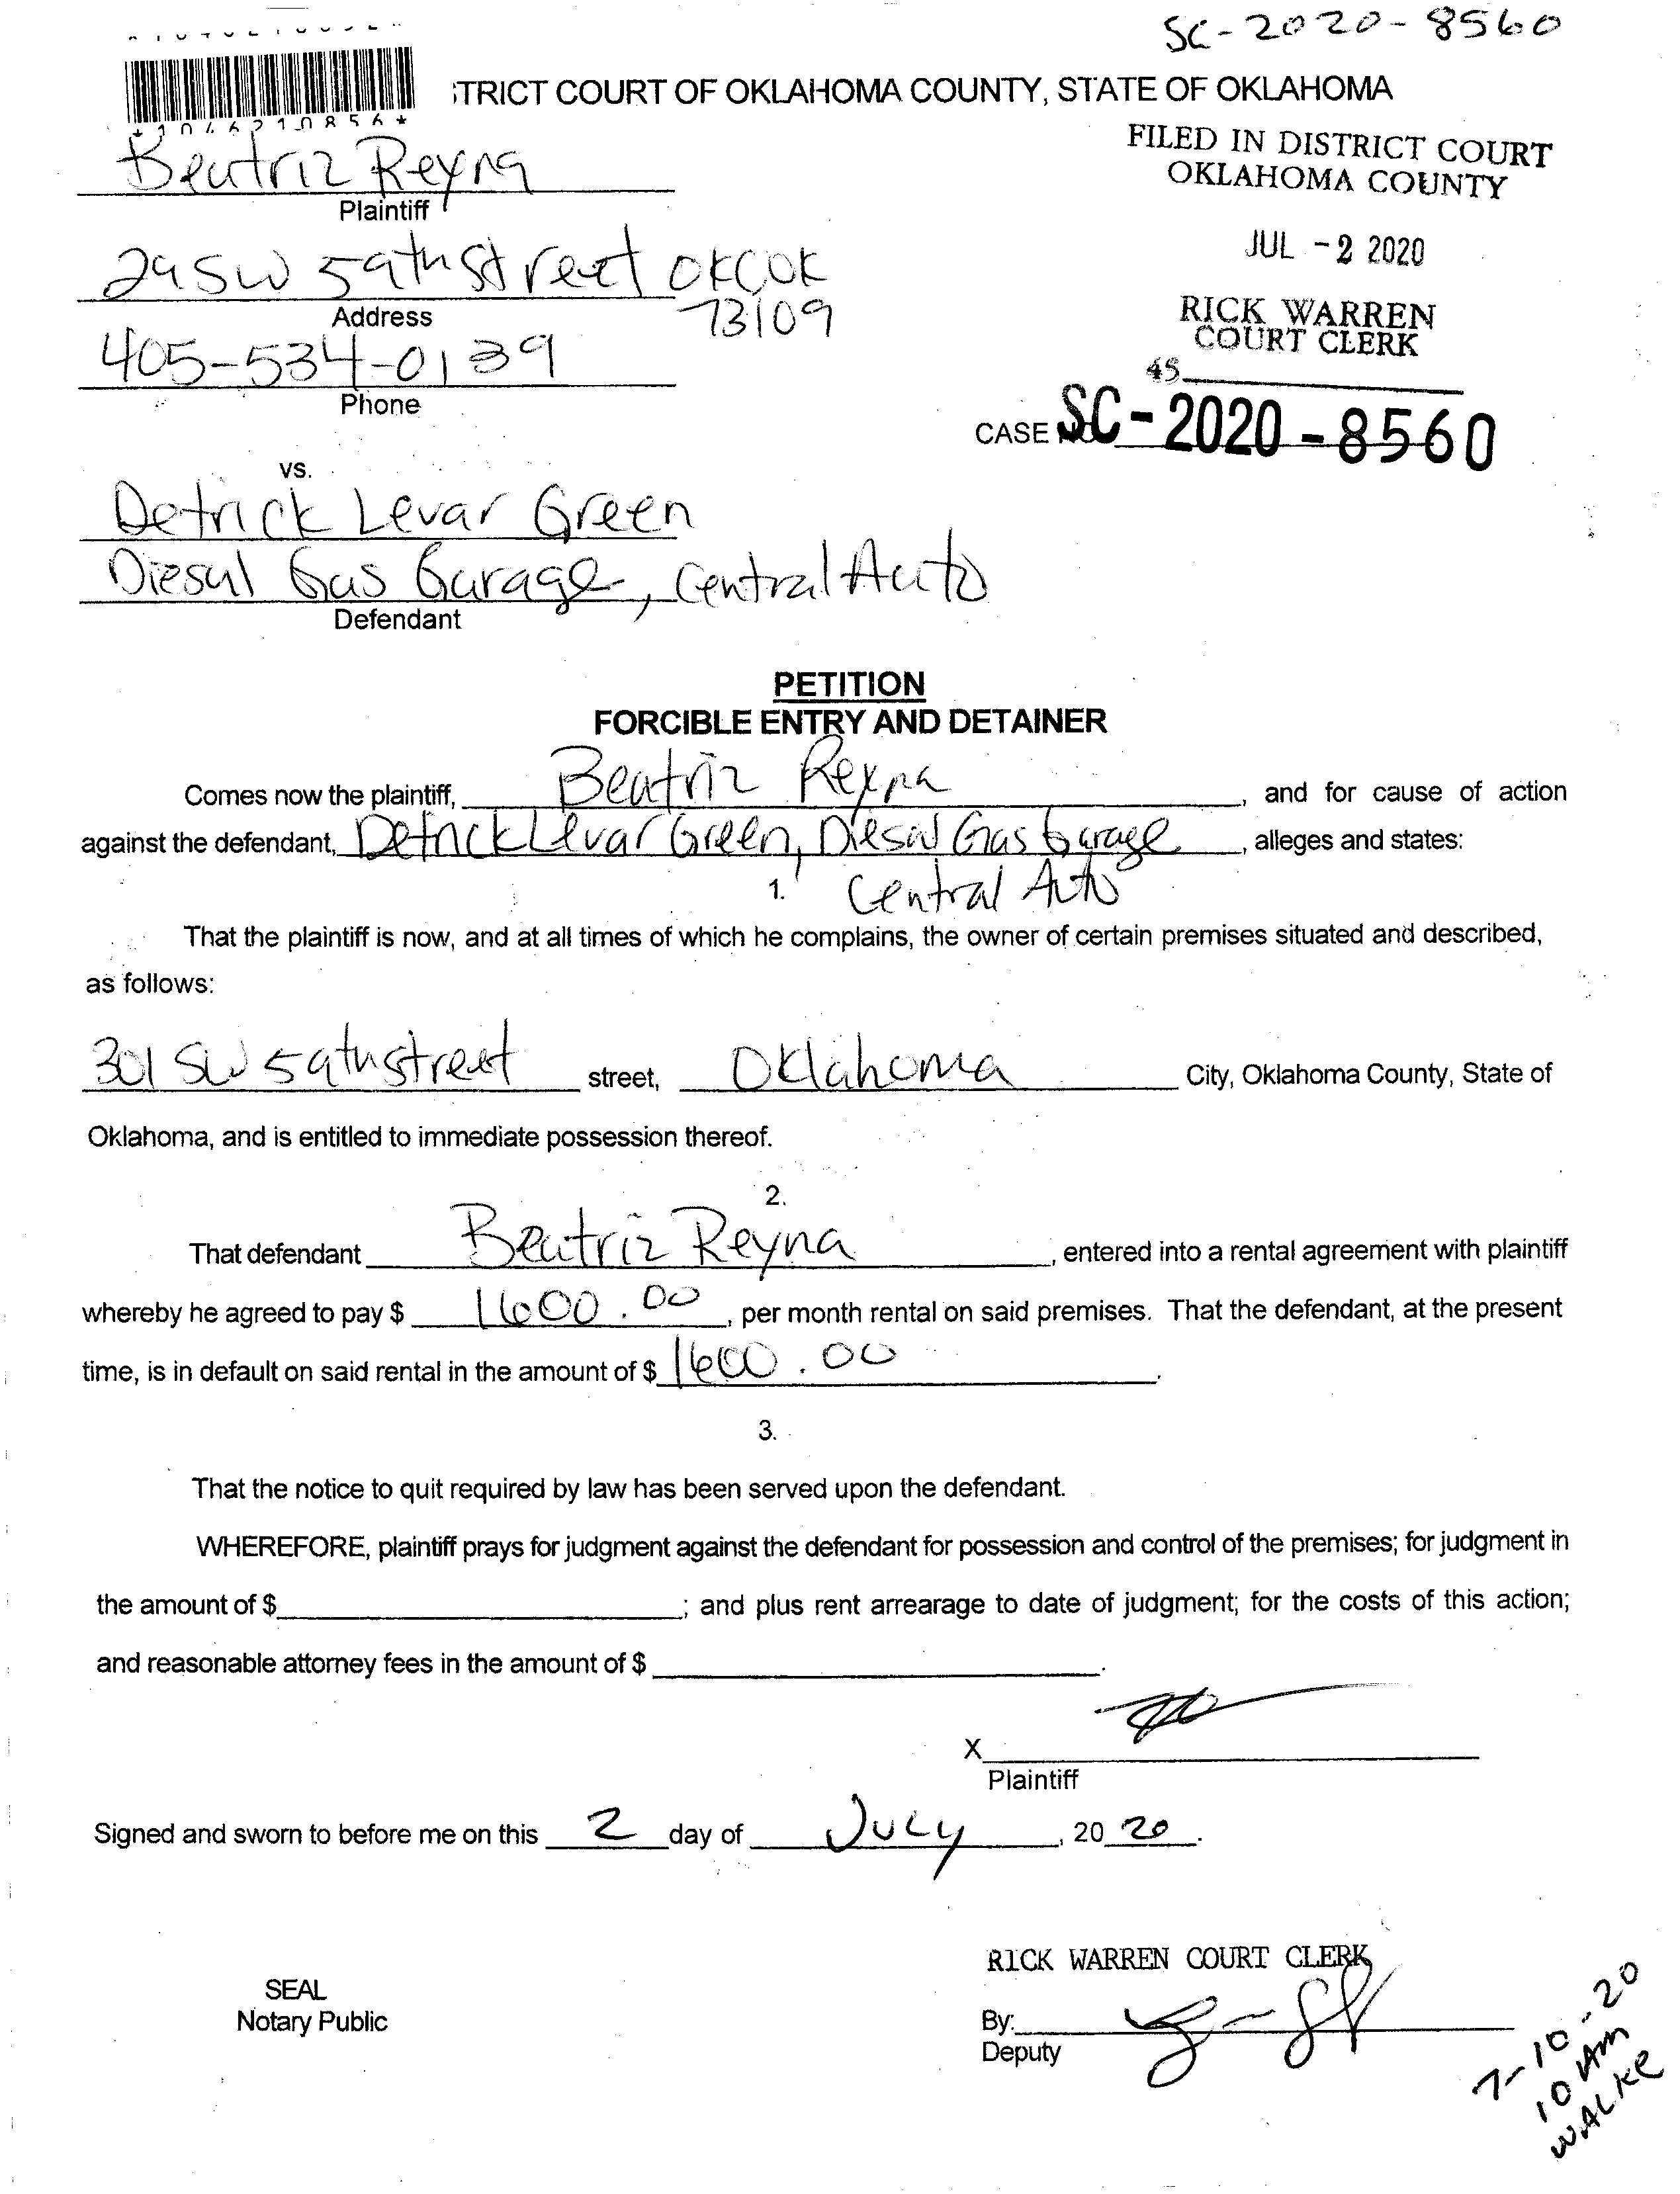 SC-2020-8560
TRICT COURT OF OKLAHOMA COUNTY, STATE OF OKLAHOMA
*1046210856*
FILED IN DISTRICT COURT
OKLAHOMA COUNTY
Beatriz Reyna
Plaintiff
JUL -2 2020
29 SW 59th street OKC OK
73109
Address
RICK WARREN
COURT CLERK
405-534-0139
45
Phone
CASE NO. SC-2020-8560
vs.
Detrick Levar Green
Diesul Gas Garage, Central Auto
Defendant
PETITION
FORCIBLE ENTRY AND DETAINER
Comes now the plaintiff, Beatriz Reyna, and for cause of action
against the defendant, Detrick Levar Green, Diesul Gas Garage, alleges and states:
1. Central Auto
That the plaintiff is now, and at all times of which he complains, the owner of certain premises situated and described,
as follows:
301 SW 59th street street, Oklahoma City, Oklahoma County, State of
Oklahoma, and is entitled to immediate possession thereof.
2.
That defendant Beatriz Reyna, entered into a rental agreement with plaintiff
whereby he agreed to pay $ 1600.00, per month rental on said premises. That the defendant, at the present
time, is in default on said rental in the amount of $ 1600.00.
3.
That the notice to quit required by law has been served upon the defendant.
WHEREFORE, plaintiff prays for judgment against the defendant for possession and control of the premises; for judgment in
the amount of $; and plus rent arrearage to date of judgment; for the costs of this action;
and reasonable attorney fees in the amount of $.
X
Plaintiff
Signed and sworn to before me on this 2 day of July, 20 20.
RICK WARREN COURT CLERK
SEAL
Notary Public
By:
Deputy
7-10-20
10 AM
WALKE